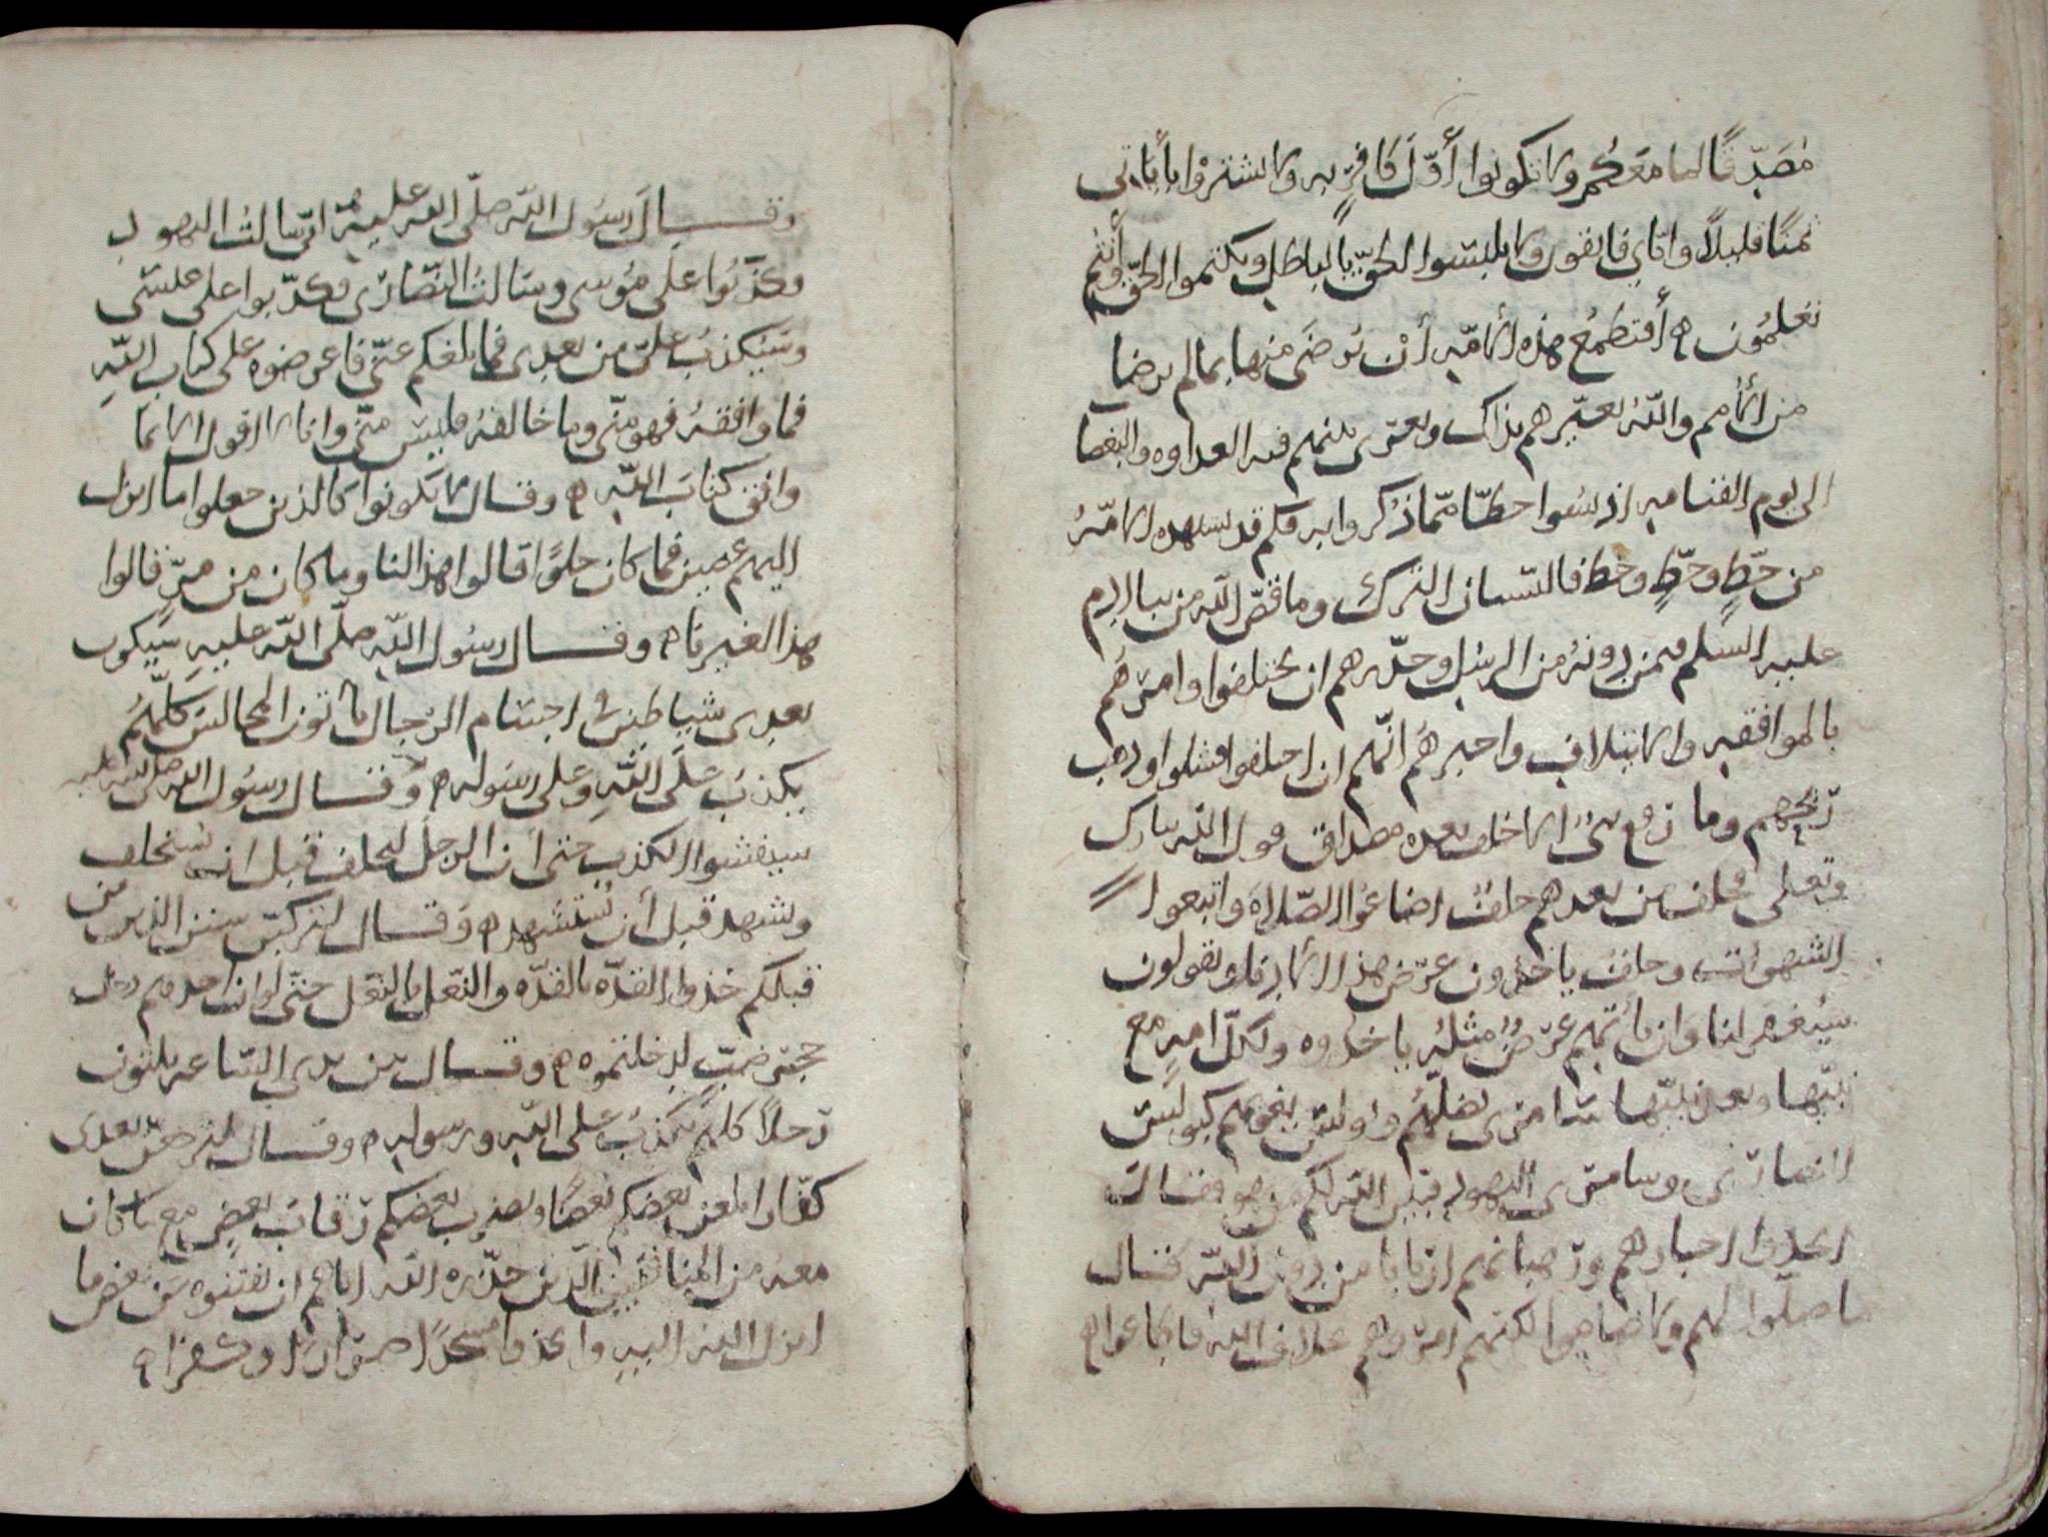 مُصَدِّقًا لما مَعَكُم ولا تكونوا أَوّلَ كافرٍ به ولا تشتروا بأياتى
ثمنًا قليلاً واياي فاتقون ولا تلبسوا الحقّ بالباطل وتكتموا الحقّ وأنتم
تعلمُون ه أفتطمعُ هذه الأمّه أنْ تَرضَى منها بما لم يرضا
من الأُمم واللّهُ يعيّرهم بذاك ويغرى بينهم فيه العداوه والبغضا
الى يوم القيامه اذ نسُوا حظّا ممّا ذُكروا به فكم قد نسيت هذه الأمّهُ
من حظٍّ وحظٍّ وحظ فالنسيان الترك وما قصّ اللّه من نبا ادم
عليه السّلم فمن دونهُ من الرسُل وحذّرهم ان يختلفوا وامرَهُم
بالموافقه والايتلاف واخبرهُم انّهم ان اختلفوا فشلوا وذهب
ريحهم وما رفع شئٌ الا خلف بعده مصداق قول اللّه تبارك
وتعلى فخلف من بعدهم خلفٌ اضاعُوا الصّلاةَ واتبعوا
الشهوات وخلفٌ ياخذون عرَض هذا الأدنى ويقولون
سيُغفر لنا وَان يأتهم عرَضٌ مثلُه ياخذوه ولكلّ امه مع
نبيّها وبعد نبيّها سامرى يضلّهُم وبولس
النصارَى وسامرى اليهود قبل اللّه لكم فقال
اتخذوا احبارهم ورهبانهم اربابا من دون اللّه فقال
ما صلّوا لهم ولا صاموا لكنهم امرُوهم بخلاف الله فاطاعوهم
وقال رسُول اللّه صلّى الله عليه انّى سالتُ اليهود
فكذَبُوا علَى مؤسى وسَالتُ النّصارَى فكذّبوا على عيسَى
وسَيُكذبُ علىّ من بعدى فما بلغكم عنّى فاعرضوه على كتاب اللّهِ
فما وافقهُ فهو منّى وما خالفهُ فليسَ منّى وانا لا اقول الا بما
وافق كتابَ اللّه ه وقال لا تكونوا كالذين جعلوا ما انزل
اليهم عضين فما كان حلوًا قالوا هذا لنا وما كان من مرّ قالوا
هذا لغيرنا ه وقال رسُول اللّه صلّى اللّه عليهِ سَيكون
بعدى شياطين فى اجسام الرّجال ياتون المجالس كلّهُم
يكذبُ علَى اللّهِ وعلى رسَوله ه وقال رسُول الله صلى الله عليه
سيفشوا الكذب حتى أن الرجلَ ليحلف قبل انْ يُستحلف
ويشهد قبل أن يُستشهد ه وَقال لتركبنّ سنن الذين من
قبلكم حذوا القذّه بالقذّه والنّعل بالنّعل حتّى لو ان احدهم دخل
جحر ضبّ لدخلتموه ه وقال بين يدى السّاعه ثلثون
رجلاً كلهم يكذبُ على اللّه ورسوله ه وقال لترجعُنّ بعدى
كفّارا يلعن بعضكم بعضًا ويضرب بعضكم رقابَ بعض مع ما كان
معهُ من المنافقين الّذين حذّره اللّه اياهم ان يفتنوه عن بعض ما
انزل اللّه اليهِ واتخذوا مسجدًا ضرارًا وكفرًا ه